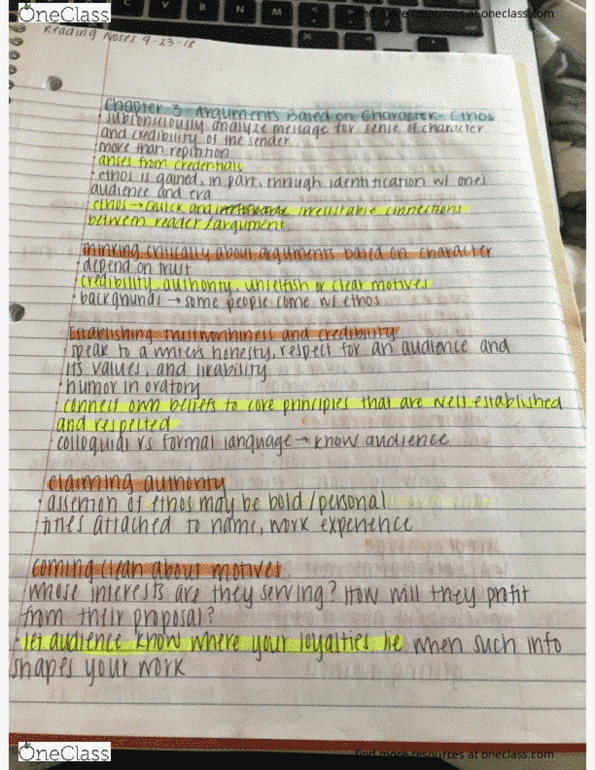 OneClass
find more resources at oneclass.com
Reading Notes 9-23-18
Chapter 3: Arguments Based on Character- Ethos
· subconsciously analyze message for sense of character
and credibility of the sender
· more than repitation
· arises from credentials
· ethos is gained, in part, through identification w/ one's
audience and era
· ethos → quick and irresistable connections
between reader/argument
Thinking critically about arguments based on character
· depend on trust
· credibility, authority, unselfish or clear motives
· backgrounds → some people come w/ ethos
Establishing trustworthiness and credibility
· speak to a writer's honesty, respect for an audience and
its values, and likability
· humor in oratory
· connect own beliefs to core principles that are well established
and respected
· colloquial vs formal language → know audience
claiming authority
· assertion of ethos may be bold/personal
· titles attached to name, work experience
coming clean about motives
· whose interests are they serving? How will they profit
from their proposal?
· let audience know where your loyalties lie when such info
shapes your work
OneClass
find more resources at oneclass.com